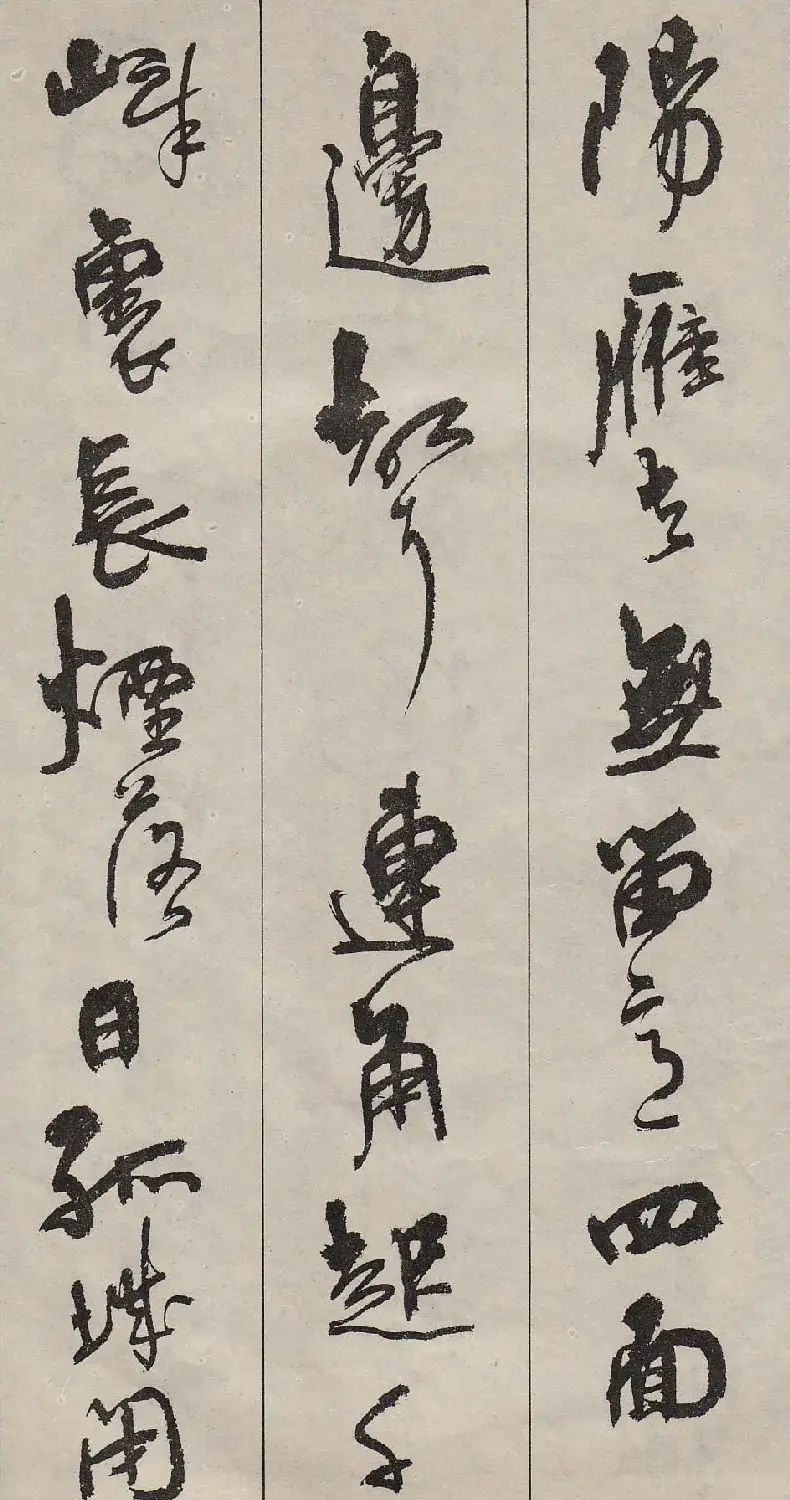 陽雁去無留意四面
邊聲連角起千
嶂裏長煙落日孤城閉